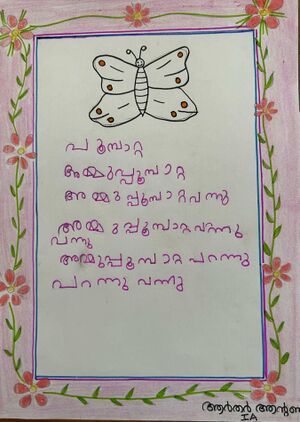 പൂമ്പാറ്റ
അമ്മുപ്പൂമ്പാറ്റ
അമ്മുപ്പൂമ്പാറ്റ വന്നു
അമ്മുപ്പൂമ്പാറ്റ വന്നു
വന്നു
അമ്മുപ്പൂമ്പാറ്റ പറന്നു
പറന്നു വന്നു
ആർതർ ആന്റണി
IA